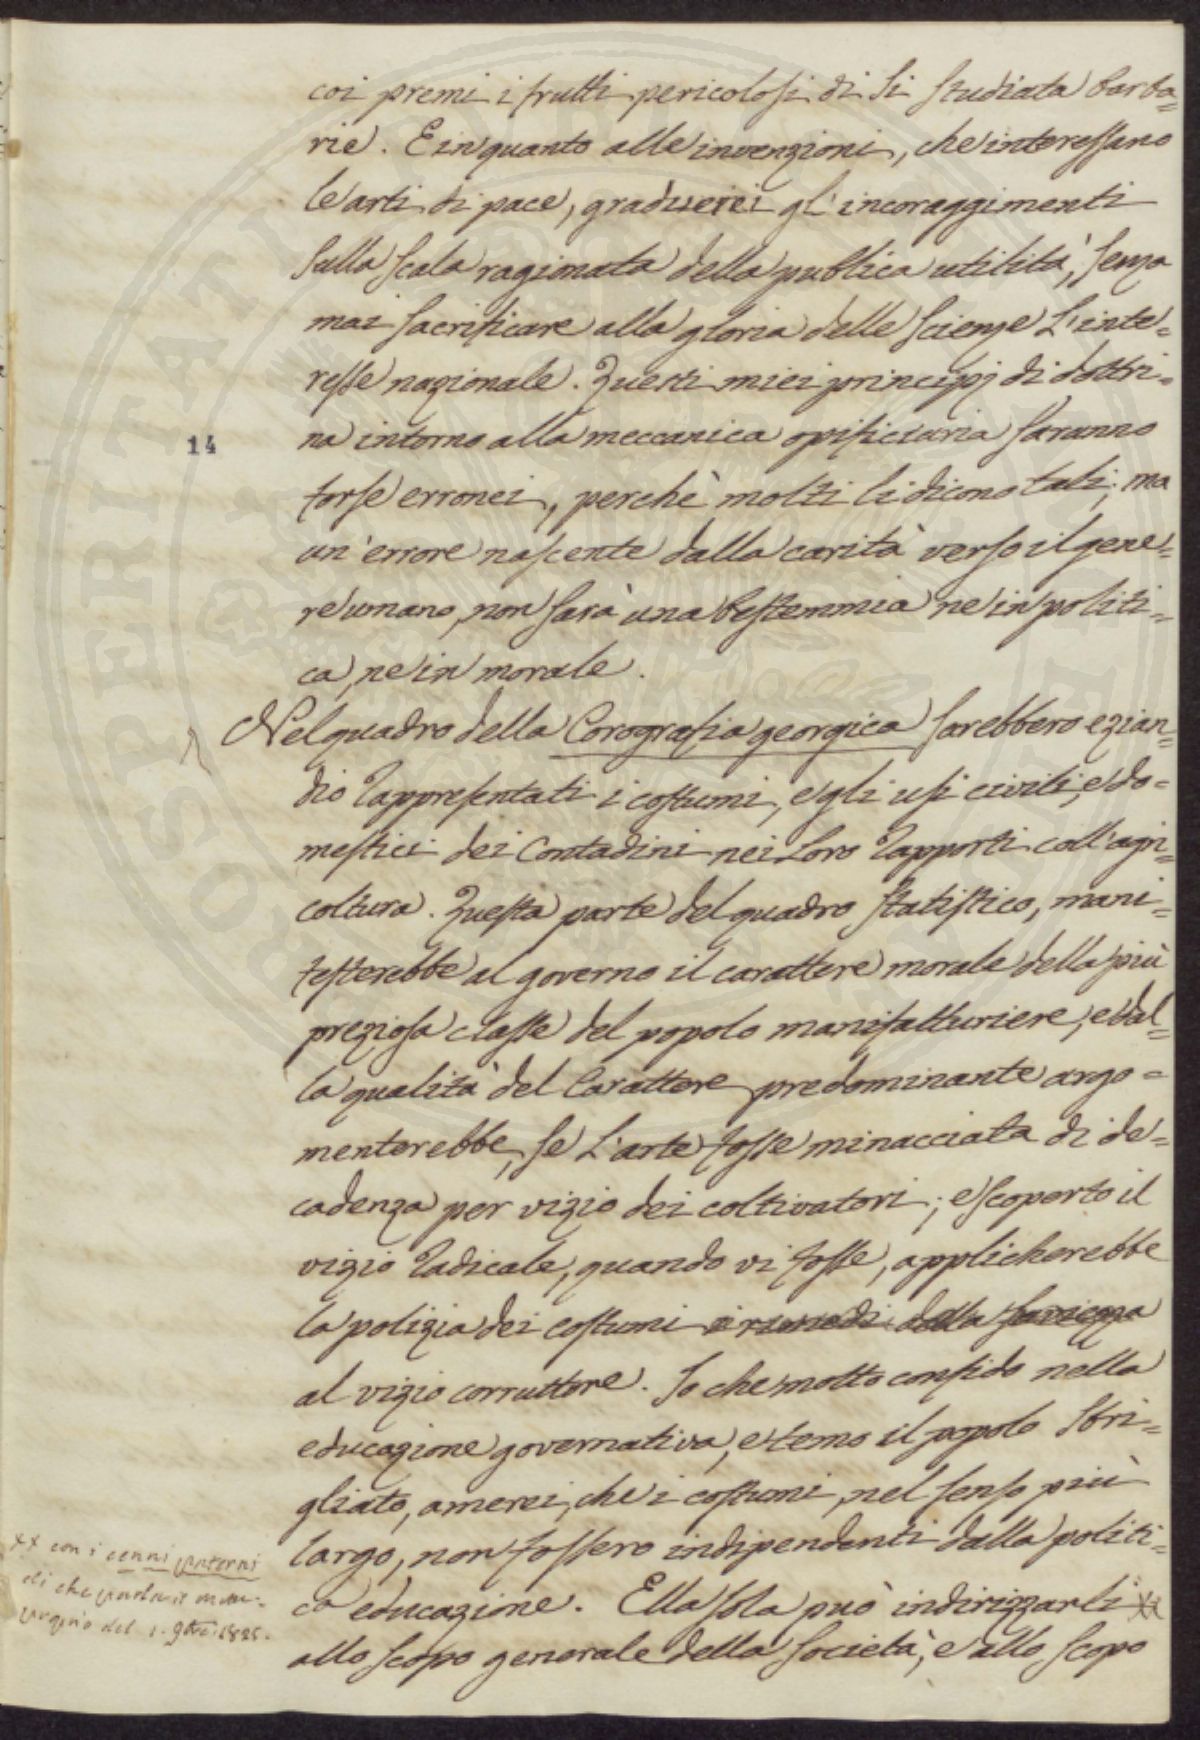 coi premi i frutti pericolosi di si studiata barba=
rie. E in quanto alle invenzioni, che interessano
le arti di pace, graduerei gl'incoraggimenti
sulla scala ragionata della publica utilità, senza
mai sacrificare alla gloria delle scienze L'inte=
resse nazionale. Questi miei principj di dottri=
14
na intorno alla meccanica opificiaria saranno
forse erronei, perchè molti li dicono tali; ma
un'errore nascente dalla carità verso il gene=
re umano, non sarà una bestemmia ne in politi=
ca, ne in morale.
Nel quadro della Corografia georgica sarebbero ezian=
dio rappresentati i costumi, e gli usi civili, e do=
mestici dei Contadini nei Loro rapporti coll'agri=
coltura. Questa parte del quadro statistico, mani=
festerebbe al governo il carattere morale della più
preziosa classe del popolo manifatturiere, e dal=
la qualità del Carattere predominante argo=
menterebbe, se L'arte fosse minacciata di de=
cadenza per vizio dei coltivatori; e scoperto il
vizio radicale, quando vi fosse, applicherebbe
la polizia dei costumi i rimedi della
al vizio corruttore. Io che molto confido nella
educazione governativa, e temo il popolo sbri=
gliato, amerei, che i costumi, nel senso più
largo, non fossero indipendenti dalla politi=
ca educazione. Ella sola può indirizzarli xx
allo scopo generale della società, e allo scopo
xx con i cenni paterni
di che parla il
del 1. 9bre 1825.